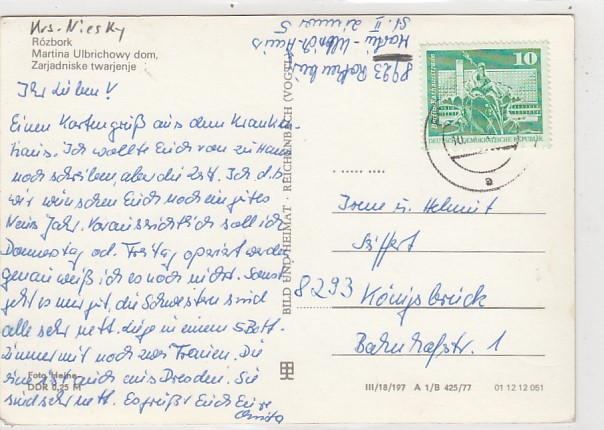 Krs. Niesky
Rózbork
Martina Ulbrichowy dom,
Zarjadniske twarjenje
8923 Rothenburg
Martin-Ulbrich-Haus
St. II Zimmer 5
10
DEUTSCHE DEMOKRATISCHE REPUBLIK
Ihr Lieben!
Einen Kartengruß aus dem Kranken-
haus. Ich wollte Euch von zu Haus
noch schreiben, aber die Zeit. Ich d.h.
wir wünschen Euch noch ein gutes
Neues Jahr. Voraussichtlich soll ich
Donnerstag od. Freitag operiert werden
genau weiß ich es noch nicht. Sonst
geht es mir gut, die Schwestern sind
alle sehr nett. Liege in einem 5 Bett-
zimmer mit noch zwei Frauen. Die
eine ist auch aus Dresden. Sie
sind sehr nett. Es grüßt Euch Eure
Foto Heine
DDR 0,25 M
BILD UND HEIMAT · REICHENBACH (VOGTL)
Irene u. Helmut
Siffert
8293 Königsbrück
Bahnhofstr. 1
III/18/197 A 1/B 425/77 01 12 12 051